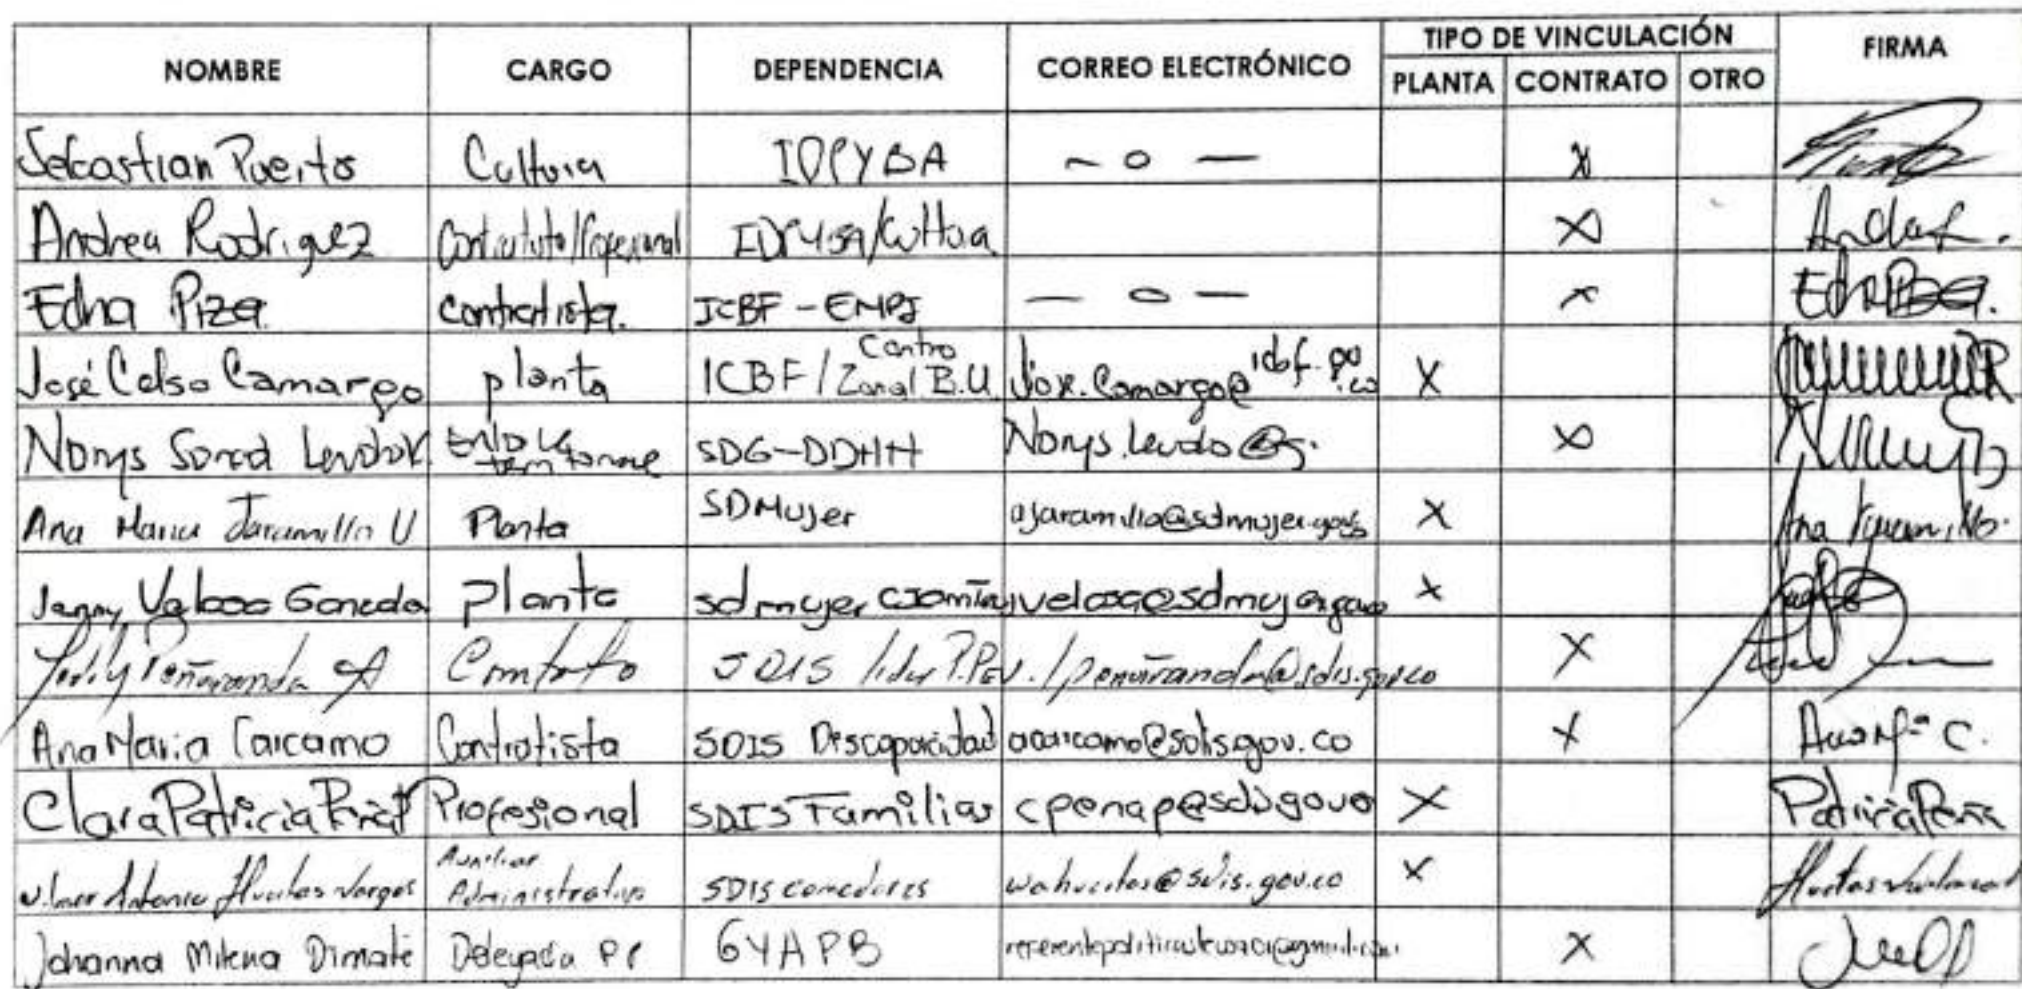 NOMBRE CARGO DEPENDENCIA CORREO ELECTRÓNICO TIPO DE VINCULACIÓN FIRMA
PLANTA CONTRATO OTRO
Sebastian Puerto Cultura IDPYBA — o — X
Andrea Rodriguez Contratista/Profesional IDPYBA/Cultura X Andrea R.
Edna Piza. contratista. ICBF - EMPJ — o — X Edna Piza.
José Celso Camargo planta ICBF / Centro Zonal B.U. Jose.Camargo@icbf.gov.co X
Norys Soned Leudo V. Enlace territorial SDG-DDHH Norys.leudo@g. X
Ana Maria Jaramillo U Planta SDMujer ajaramillo@sdmujer.gov.co X Ana Jaramillo.
Jenny planta sdmujer jvelosa@sdmujer.gov.co X
Peñaranda Contrato SDIS lider lpenaranda@sdis.gov.co X
Ana Maria Carcamo Contratista SDIS Discapacidad acarcamo@sdis.gov.co X Ana Mª C.
Clara Patricia Profesional SDIS Familias cpenap@sdis.gov.co X Patricia Peña
Antonio Huertas Vargas Auxiliar Administrativo SDIS comedores wahuertas@sdis.gov.co X
Johanna Milena Dimaté Delegada PP GYAPB X